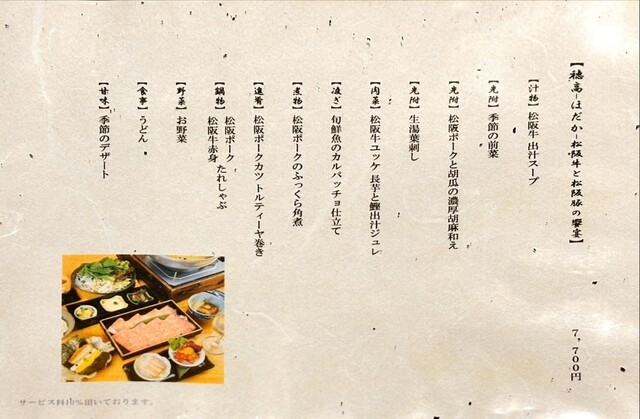 【穂高-ほだか-松阪牛と松阪豚の饗宴】 7,700円
【汁物】松阪牛 出汁スープ
【先附】季節の前菜
【先附】松阪ポークと胡瓜の濃厚胡麻和え
【先附】生湯葉刺し
【肉菜】松阪牛ユッケ 長芋と鰹出汁ジュレ
【凌ぎ】旬鮮魚のカルパッチョ仕立て
【煮物】松阪ポークのふっくら角煮
【進肴】松阪ポークカツ トルティーヤ巻き
【鍋物】松阪ポーク
松阪牛赤身 たれしゃぶ
【野菜】お野菜
【食事】うどん
【甘味】季節のデザート
サービス料10%頂いております。